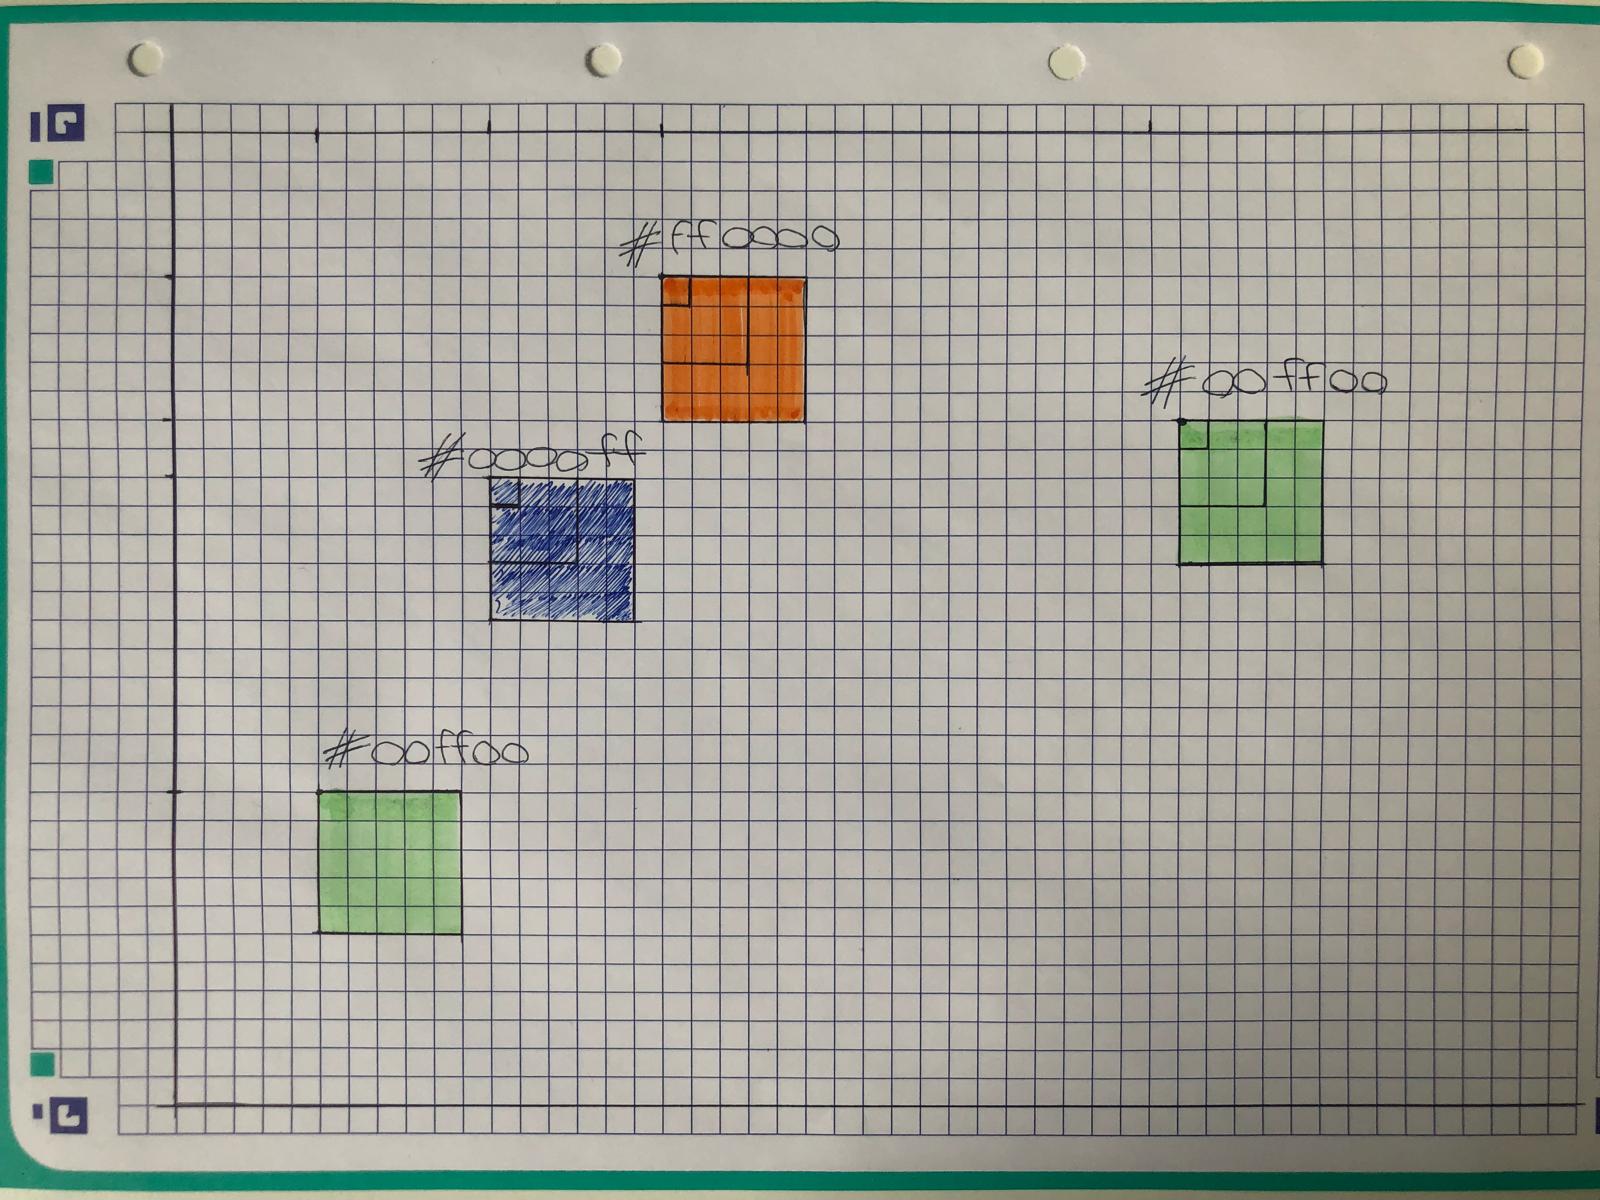 #ff0000
#00ff00
#0000ff
#00ff00